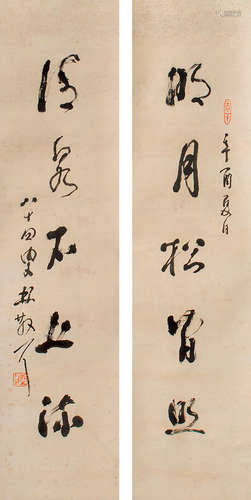 明月松间照
辛酉夏日
清泉石上流
八十四叟林散耳